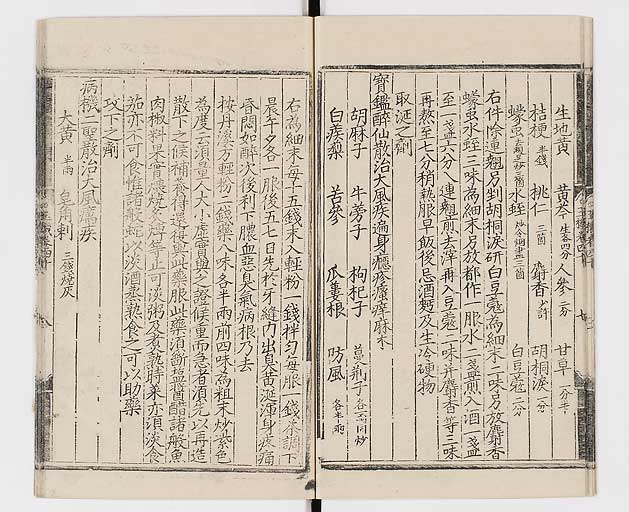 生地黃 黃芩生各四分 人參三分 甘草一分半
桔梗半錢 桃仁三箇 麝香少許 胡桐淚一分
䗪蟲 水蛭炒令烟盡三箇 白豆蔻二分
右件除連翹另剉胡桐淚研白豆蔻為細末二味另放麝香
䗪蟲水蛭三味為細末另放都作一服水二盞煎入酒一盞
至一盞六分入連翹煎去滓再入豆蔻二味并麝香等三味
再熬至七分稍熱服早飯後忌酒麵及生冷硬物
取涎之劑
寶鑑醉仙散治大風疾遍身癮疹瘙痒麻木
胡麻子 牛蒡子 枸杞子 蔓荊子各一兩同炒
白蒺藜 苦參 瓜蔞根 防風各半兩
右為細末每十五錢末入輕粉一錢拌勻每服一錢茶調下
晨午夕各一服後五七日先於牙縫內出臭黃涎渾身疼痛
昏悶如醉次後利下膿血惡臭氣病根乃去
按丹溪方輕粉二錢藥八味各半兩前四味為粗末炒紫色
為度云須量人大小虛實與之證候重而急者須先以再造
散下之候補養得還再與此藥服此藥須斷鹽醬醋諸般魚
肉椒料果實煨燒炙煿等止可淡粥及煮熟時菜亦須淡食
茄亦不可食惟諸般蛇以淡酒蒸熟食之可以助藥
攻下之劑
病機二聖散治大風癘疾
大黃半兩 皂角刺三錢燒灰